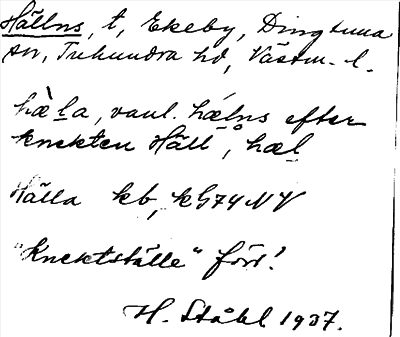 Hällns, t, Ekeby, Dingtuna
sn, Tuhundra hd, Västm. l.
hæ̀la, vanl. hælns efter
knekten Häll, hæl
Hälla kb, kG74NV
"Knektställe" förr!
H. Ståhl 1937.